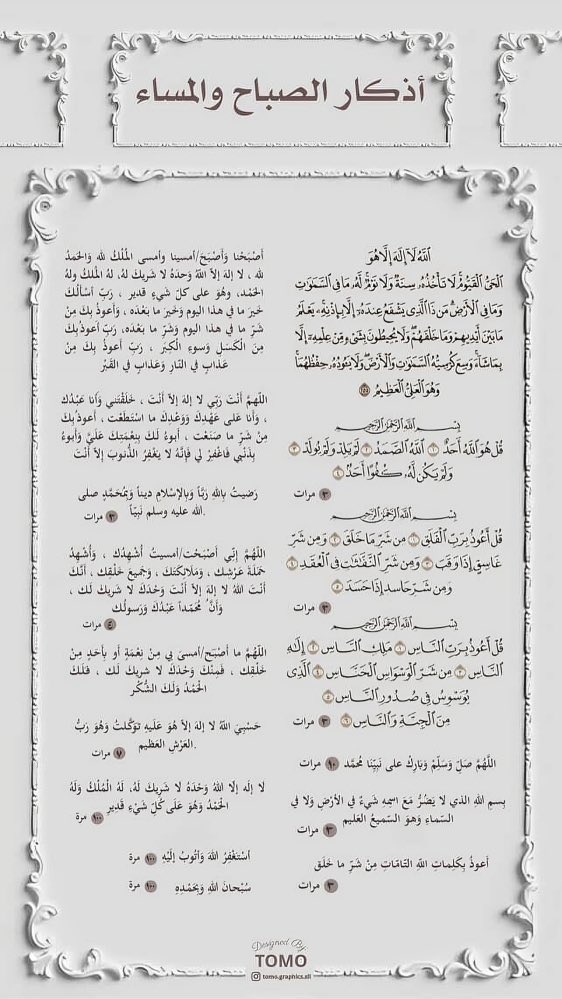 أذكار الصباح والمساء
اللَّهُ لَا إِلَٰهَ إِلَّا هُوَ
الْحَيُّ الْقَيُّومُ لَا تَأْخُذُهُ سِنَةٌ وَلَا نَوْمٌ لَّهُ مَا فِي السَّمَاوَاتِ
وَمَا فِي الْأَرْضِ مَن ذَا الَّذِي يَشْفَعُ عِندَهُ إِلَّا بِإِذْنِهِ يَعْلَمُ
مَا بَيْنَ أَيْدِيهِمْ وَمَا خَلْفَهُمْ وَلَا يُحِيطُونَ بِشَيْءٍ مِّنْ عِلْمِهِ إِلَّا
بِمَا شَاءَ وَسِعَ كُرْسِيُّهُ السَّمَاوَاتِ وَالْأَرْضَ وَلَا يَئُودُهُ حِفْظُهُمَا
وَهُوَ الْعَلِيُّ الْعَظِيمُ ٢٥٥
بِسْمِ اللَّهِ الرَّحْمَٰنِ الرَّحِيمِ
قُلْ هُوَ اللَّهُ أَحَدٌ ١ اللَّهُ الصَّمَدُ ٢ لَمْ يَلِدْ وَلَمْ يُولَدْ ٣
وَلَمْ يَكُن لَّهُ كُفُوًا أَحَدٌ ٤
٣ مرات
بِسْمِ اللَّهِ الرَّحْمَٰنِ الرَّحِيمِ
قُلْ أَعُوذُ بِرَبِّ الْفَلَقِ ١ مِن شَرِّ مَا خَلَقَ ٢ وَمِن شَرِّ
غَاسِقٍ إِذَا وَقَبَ ٣ وَمِن شَرِّ النَّفَّاثَاتِ فِي الْعُقَدِ ٤
وَمِن شَرِّ حَاسِدٍ إِذَا حَسَدَ ٥
٣ مرات
بِسْمِ اللَّهِ الرَّحْمَٰنِ الرَّحِيمِ
قُلْ أَعُوذُ بِرَبِّ النَّاسِ ١ مَلِكِ النَّاسِ ٢ إِلَٰهِ
النَّاسِ ٣ مِن شَرِّ الْوَسْوَاسِ الْخَنَّاسِ ٤ الَّذِي
يُوَسْوِسُ فِي صُدُورِ النَّاسِ ٥
مِنَ الْجِنَّةِ وَالنَّاسِ ٦ ٣ مرات
اللَّهُمَّ صَلِّ وَسَلِّمْ وَبَارِكْ على نَبِيِّنَا مُحَمَّد ١٠ مرات
بِسمِ اللهِ الذي لا يَضُرُّ مَعَ اسمِهِ شَيءٌ في الأرْضِ وَلا في
السّماءِ وَهوَ السّميعُ العَليم
٣ مرات
أَعوذُ بِكَلِماتِ اللّهِ التّامّاتِ مِنْ شَرِّ ما خَلَق
٣ مرات
أَصْبَحْنا وَأَصْبَحَ/أمسينا وأمسى الْمُلْكُ لله وَالحَمدُ
لله ، لا إلهَ إلاّ اللّهُ وَحدَهُ لا شَريكَ لهُ، لهُ المُلكُ ولهُ
الحَمْد، وهُوَ على كلّ شَيءٍ قدير ، رَبِّ أسْأَلُكَ
خَيرَ ما في هذا اليوم وَخَيرَ ما بَعْدَه ، وَأَعوذُ بِكَ مِنْ
شَرِّ ما في هذا اليوم وَشَرِّ ما بَعْدَه، رَبِّ أَعوذُ بِكَ
مِنَ الْكَسَلِ وَسوءِ الْكِبَر ، رَبِّ أَعوذُ بِكَ مِنْ
عَذابٍ في النّارِ وَعَذابٍ في القَبْر
اللّهمَّ أَنْتَ رَبِّي لا إلهَ إلاّ أَنْتَ ، خَلَقْتَني وَأَنا عَبْدُك
، وَأَنا عَلى عَهْدِكَ وَوَعْدِكَ ما اسْتَطَعْت ، أَعوذُ بِكَ
مِنْ شَرِّ ما صَنَعْت ، أَبوءُ لَكَ بِنِعْمَتِكَ عَلَيَّ وَأَبوءُ
بِذَنْبي فَاغْفِرْ لي فَإِنَّهُ لا يَغْفِرُ الذُّنوبَ إِلاّ أَنْتَ
رَضيتُ بِاللهِ رَبًّا وَبِالإسْلامِ ديناً وَبِمُحَمَّدٍ صلى
الله عليه وسلم نَبِيّاً. ٣ مرات
اللّهُمَّ إِنِّي أَصْبَحْت/أمسيتُ أُشْهِدُك ، وَأُشْهِدُ
حَمَلَةَ عَرْشِك ، وَمَلَائِكَتَكَ ، وَجَميعَ خَلْقِك ، أَنَّكَ
أَنْتَ اللهُ لا إلهَ إلاّ أَنْتَ وَحْدَكَ لا شَريكَ لَك ،
وَأَنَّ مُحَمّداً عَبْدُكَ وَرَسولُك
٤ مرات
اللّهُمَّ ما أَصْبَح/أمسى بي مِنْ نِعْمَةٍ أو بِأَحَدٍ مِنْ
خَلْقِك ، فَمِنْكَ وَحْدَكَ لا شريكَ لَك ، فَلَكَ
الْحَمْدُ وَلَكَ الشُّكْر
حَسْبِيَ اللّهُ لا إلهَ إلاّ هُوَ عَلَيهِ تَوَكَّلتُ وَهُوَ رَبُّ
العَرْشِ العَظيم.
٧ مرات
لَا إلَه إلّا اللهُ وَحْدَهُ لَا شَرِيكَ لَهُ، لَهُ الْمُلْكُ وَلَهُ
الْحَمْدُ وَهُوَ عَلَى كُلِّ شَيْءٍ قَدِير ١٠٠ مرة
أسْتَغْفِرُ اللهَ وَأتُوبُ إلَيْهِ ١٠٠ مرة
سُبْحانَ اللهِ وَبِحَمْدِهِ ١٠٠ مرة
Designed By:
TOMO
tomo.graphics.all